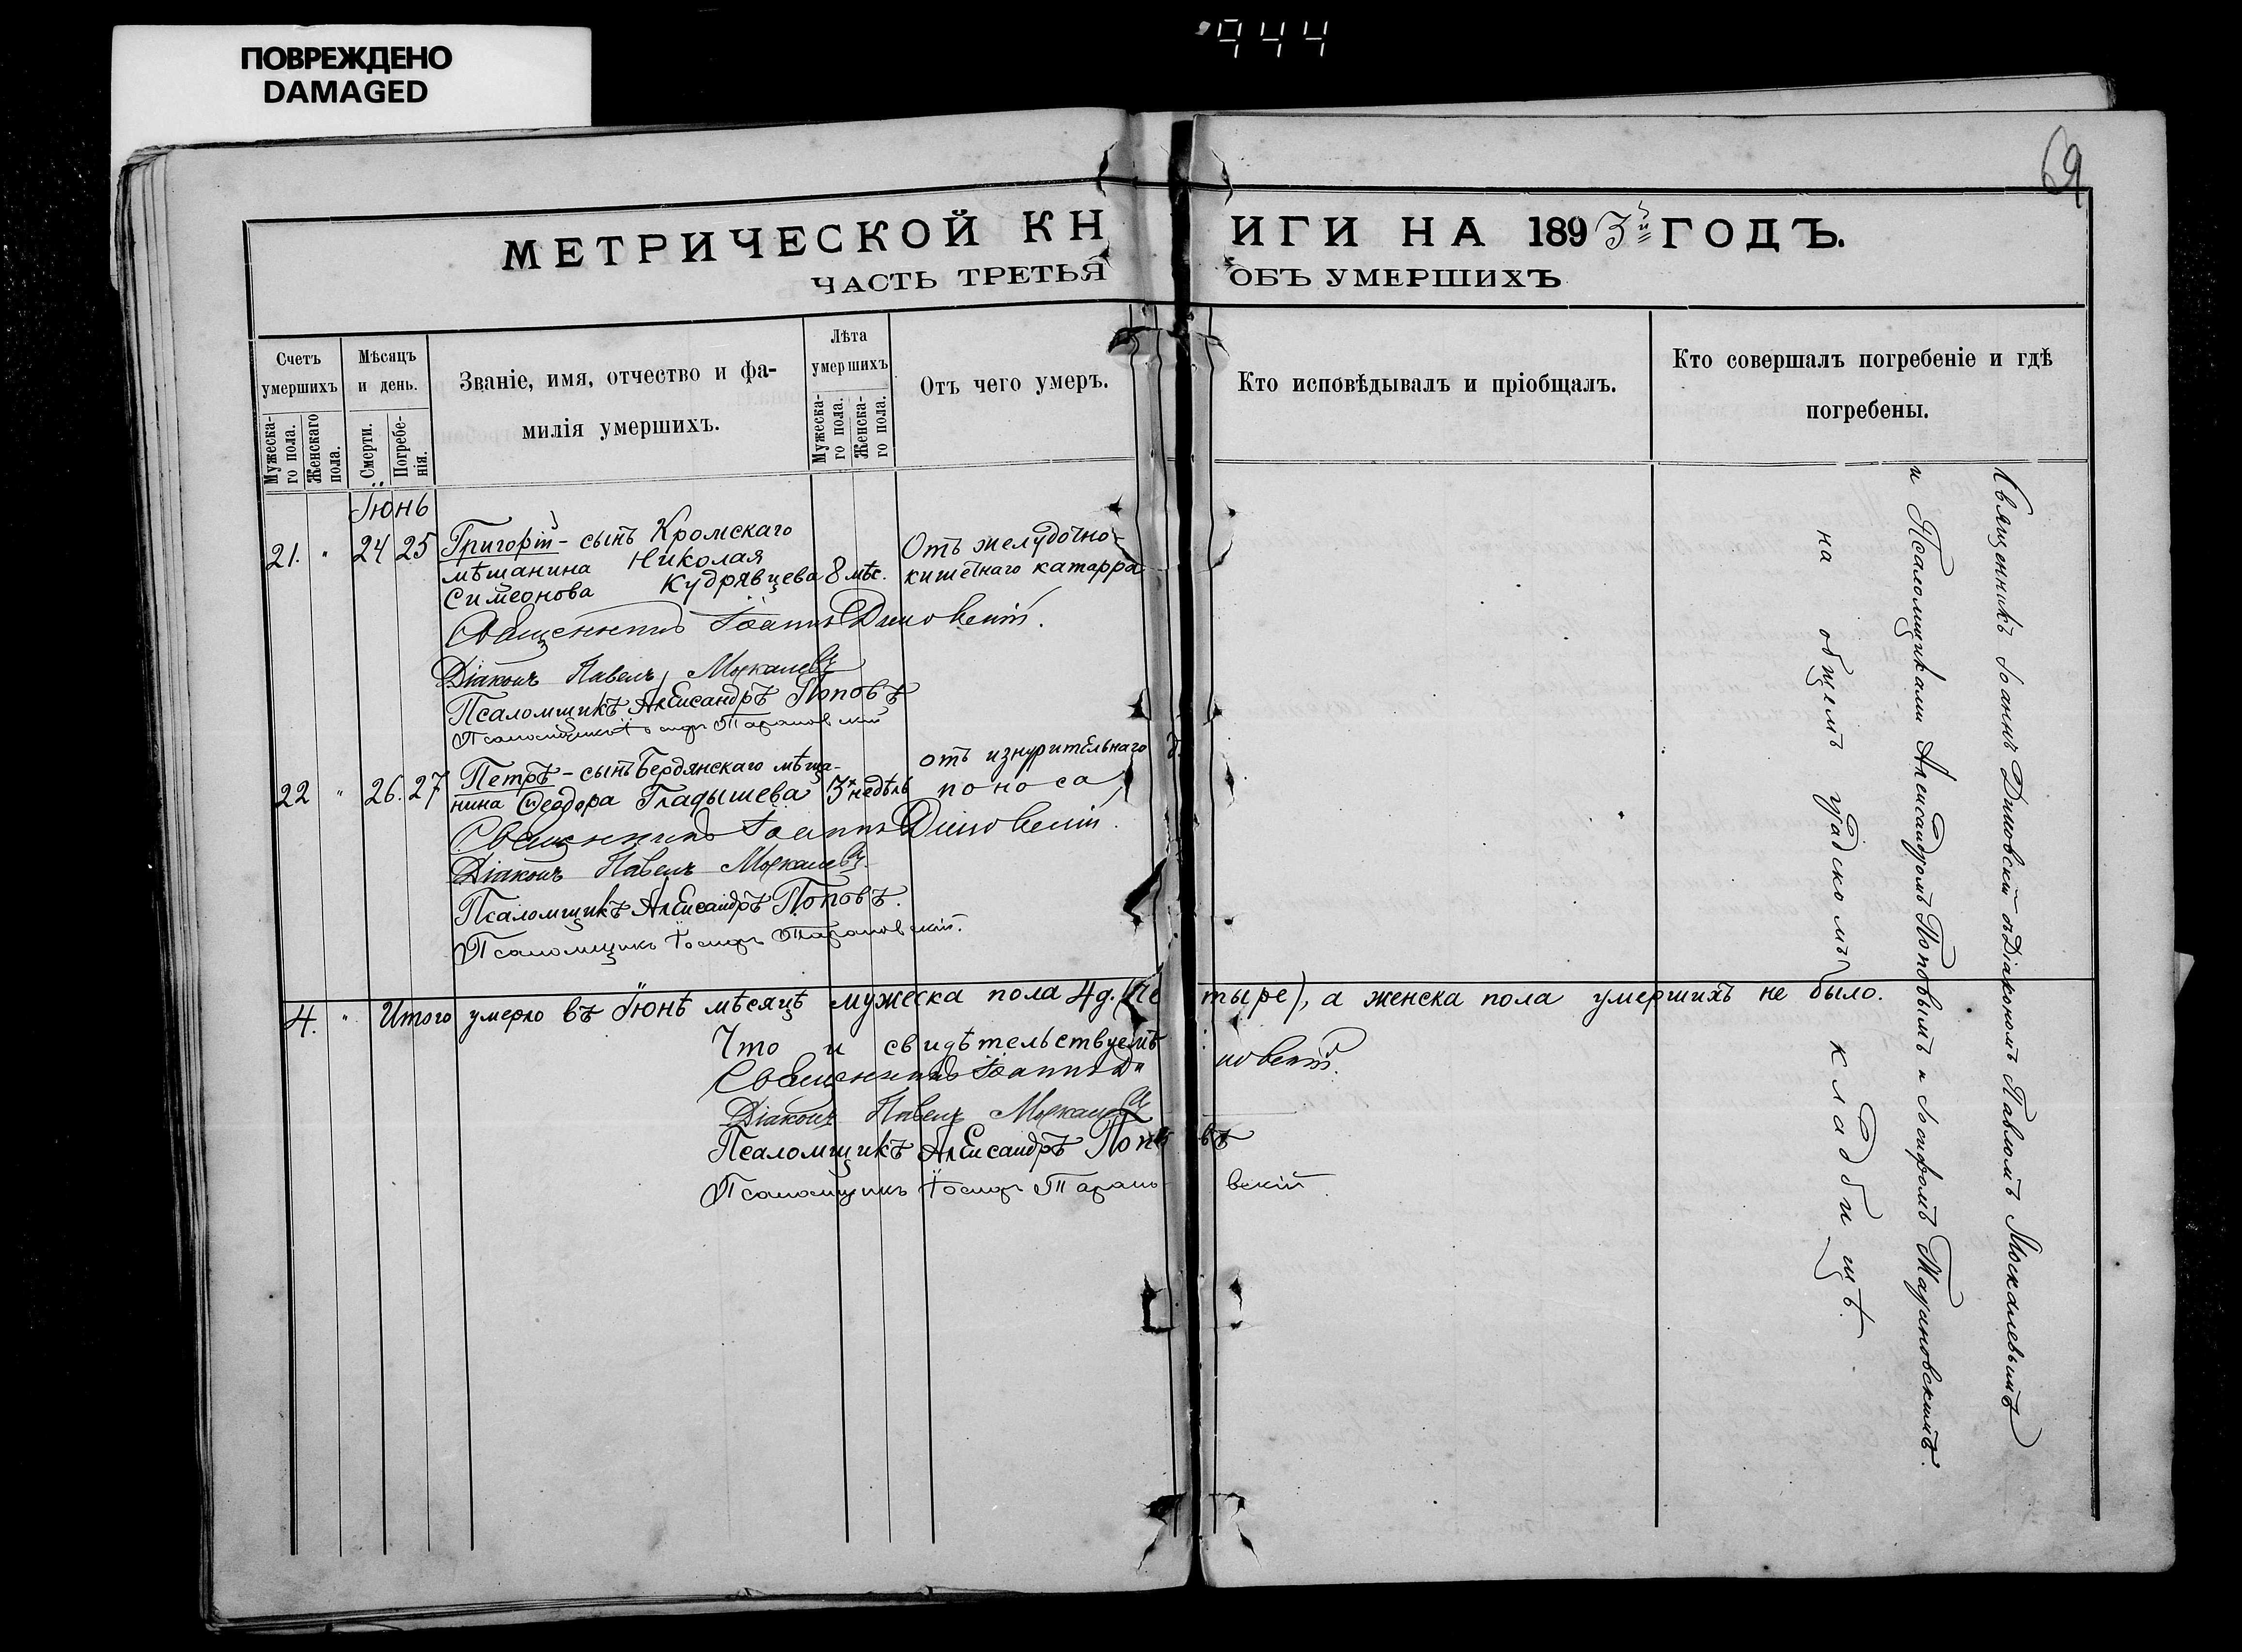 ПОВРЕЖДЕНО
DAMAGED
944
69
МЕТРИЧЕСКОЙ КНИГИ НА 1893й ГОДЪ.
ЧАСТЬ ТРЕТЬЯ ОБЪ УМЕРШИХЪ
Счетъ умершихъ
Мужеска-го пола.
Женскаго пола.
Мѣсяцъ и день.
Смерти.
Погребе-нія.
Званіе, имя, отчество и фа-
милія умершихъ.
Лѣта умершихъ
Мужеска-го пола.
Женска-го пола.
Отъ чего умеръ.
Кто исповѣдывалъ и пріобщалъ.
Кто совершалъ погребеніе и гдѣ
погребены.
Іюнь
21. " 24 25 Григорій - сынъ Кромскаго
мѣщанина Николая
Симеонова Кудрявцева 8 мѣс.
Отъ желудочно-
кишечнаго катарра
Священникъ Іоаннъ Димовскій.
Діаконъ Павелъ Москалевъ
Псаломщикъ Александръ Поповъ
Псаломщикъ Іосифъ Тарановскій
22 " 26. 27 Петръ - сынъ Бердянскаго мѣща-
нина Ѳеодора Гладышева 3 недѣль
отъ изнурительнаго
поноса
Священникъ Іоаннъ Димовскій.
Діаконъ Павелъ Москалевъ.
Псаломщикъ Александръ Поповъ.
Псаломщикъ Іосифъ Тарановскій.
4. " Итого умерло въ Іюнѣ мѣсяцѣ мужеска пола 4 д. (четыре), а женска пола умершихъ не было.
Что и свидѣтельствуемъ
Священникъ Іоаннъ Димовскій.
Діаконъ Павелъ Москалевъ
Псаломщикъ Александръ Поповъ
Псаломщикъ Іосифъ Тарановскій.
Священникъ Іоаннъ Димовскій съ Діакономъ Павломъ Москалевымъ
и Псаломщиками Александромъ Поповымъ и Іосифомъ Тарановскимъ.
на общемъ градскомъ кладбищѣ.